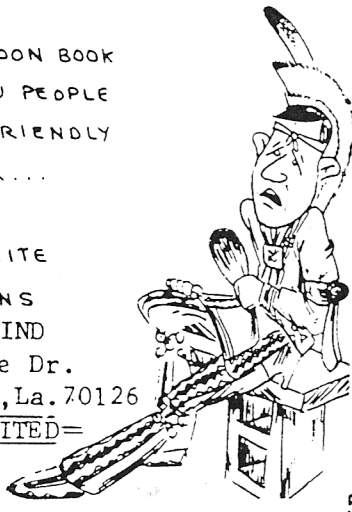 OON BOOK
U PEOPLE
RIENDLY
...
ITE
NS
IND
e Dr.
,La.70126
ITED=